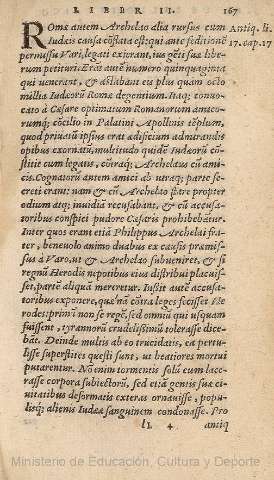 LIBER II. 167
ROmæ autem Archelao alia rursus cum Antiq. li.
Iudæis causa cõstata est: qui ante seditionẽ 17. cap. 17
permissu Vari, legati exierant, ius gẽtis sua liberum
petituri. Erãt autẽ numero quinquaginta
qui venerant, & astabant eis plus quàm octo
millia Iudæorũ Romæ degentium. Itaq; conuocato
à Cæsare optimatum Romanorum amicorumq́;
cõcilio in Palatini Apollonis tẽplum,
quod priuatũ ipsius erat ædificium admirandis
opibus exornatũ, multitudo quidẽ Iudæorũ cõstitit
cum legatis, cõtraq́; Archelaus cũ amicis.
Cognatorũ antem amici ab utraq; parte secreti
erant: nam & cũ Archelao stare propter
odium atq; inuidiã recusabant, & cũ accusatoribus
conspici pudore Cæsaris prohibebãtur.
Inter quos erat etiã Philippus Archelai frater,
beneuolo animo duabus ex causis præmissus
à Varo, ut & Archelao subueniret, & si
regnũ Herodis nepotibus eius distribui placuisset,
parte aliquã mereretur. Iussit autẽ accusatoribus
exponere, quæ nã cõtra leges fecisset Herodes:
primũ non se regẽ, sed omniũ qui usquam
fuissent, tyrannorũ crudelissimũ tolerasse dicebãt.
Deinde multis ab eo trucidatis, ea pertulisse
superstites questi sunt, ut beatiores mortui
putarentur. Nõ enim tormentis solũ eum lacerasse
corpora subiectorũ, sed etiã gentis suæ ciuitatibus
deformatis externas ornauisse, populisq́;
alienis Iudææ sanguinem condonasse. Pro
ll 4 antiq
Ministerio de Educación, Cultura y Deporte